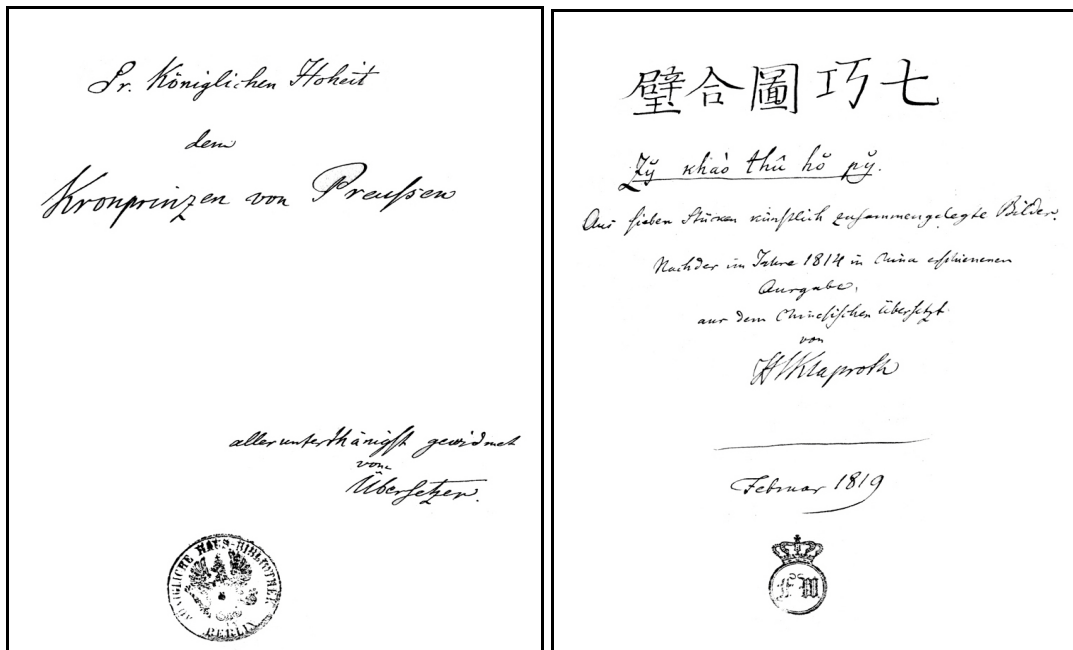 Sr. Königlichen Hoheit
dem
Kronprinzen von Preußen
allerunterthänigst gewidmet
vom
Übersetzer.
KÖNIGLICHE HAUS-BIBLIOTHEK
BERLIN
璧合圖巧七
Zỹ khào thû hŏ pỹ.
Aus sieben Stücken künstlich zusammengelegte Bilder.
Nach der im Jahre 1814 in China erschienenen
Ausgabe,
aus dem Chinesischen übersetzt
von
Klaproth
Februar 1819
FW